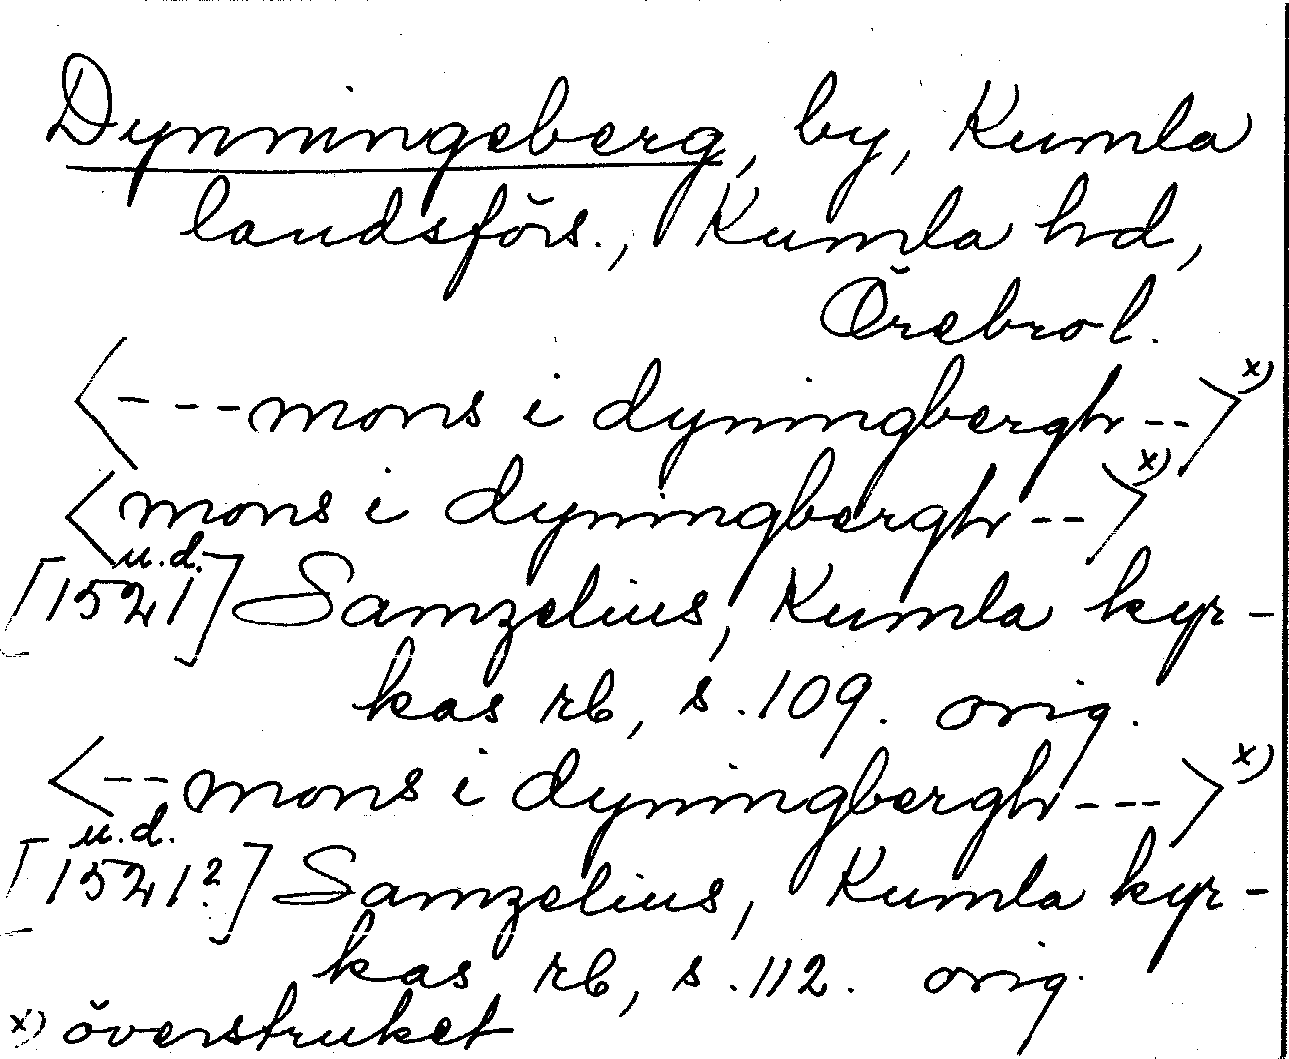 Dynningeberg, by, Kumla
landsförs., Kumla hd,
Örebro l.
<- - - -mons i dyningbergh - ->x)
<mons i dyningbergh - ->x)
u.d.
[1521] Samzelius, Kumla kyr-
kas rb, s. 109. orig.
<- - mons i dyningbergh - - ->x)
u.d.
[1521?] Samzelius, Kumla kyr-
kas rb, s. 112. orig.
x) överstruket